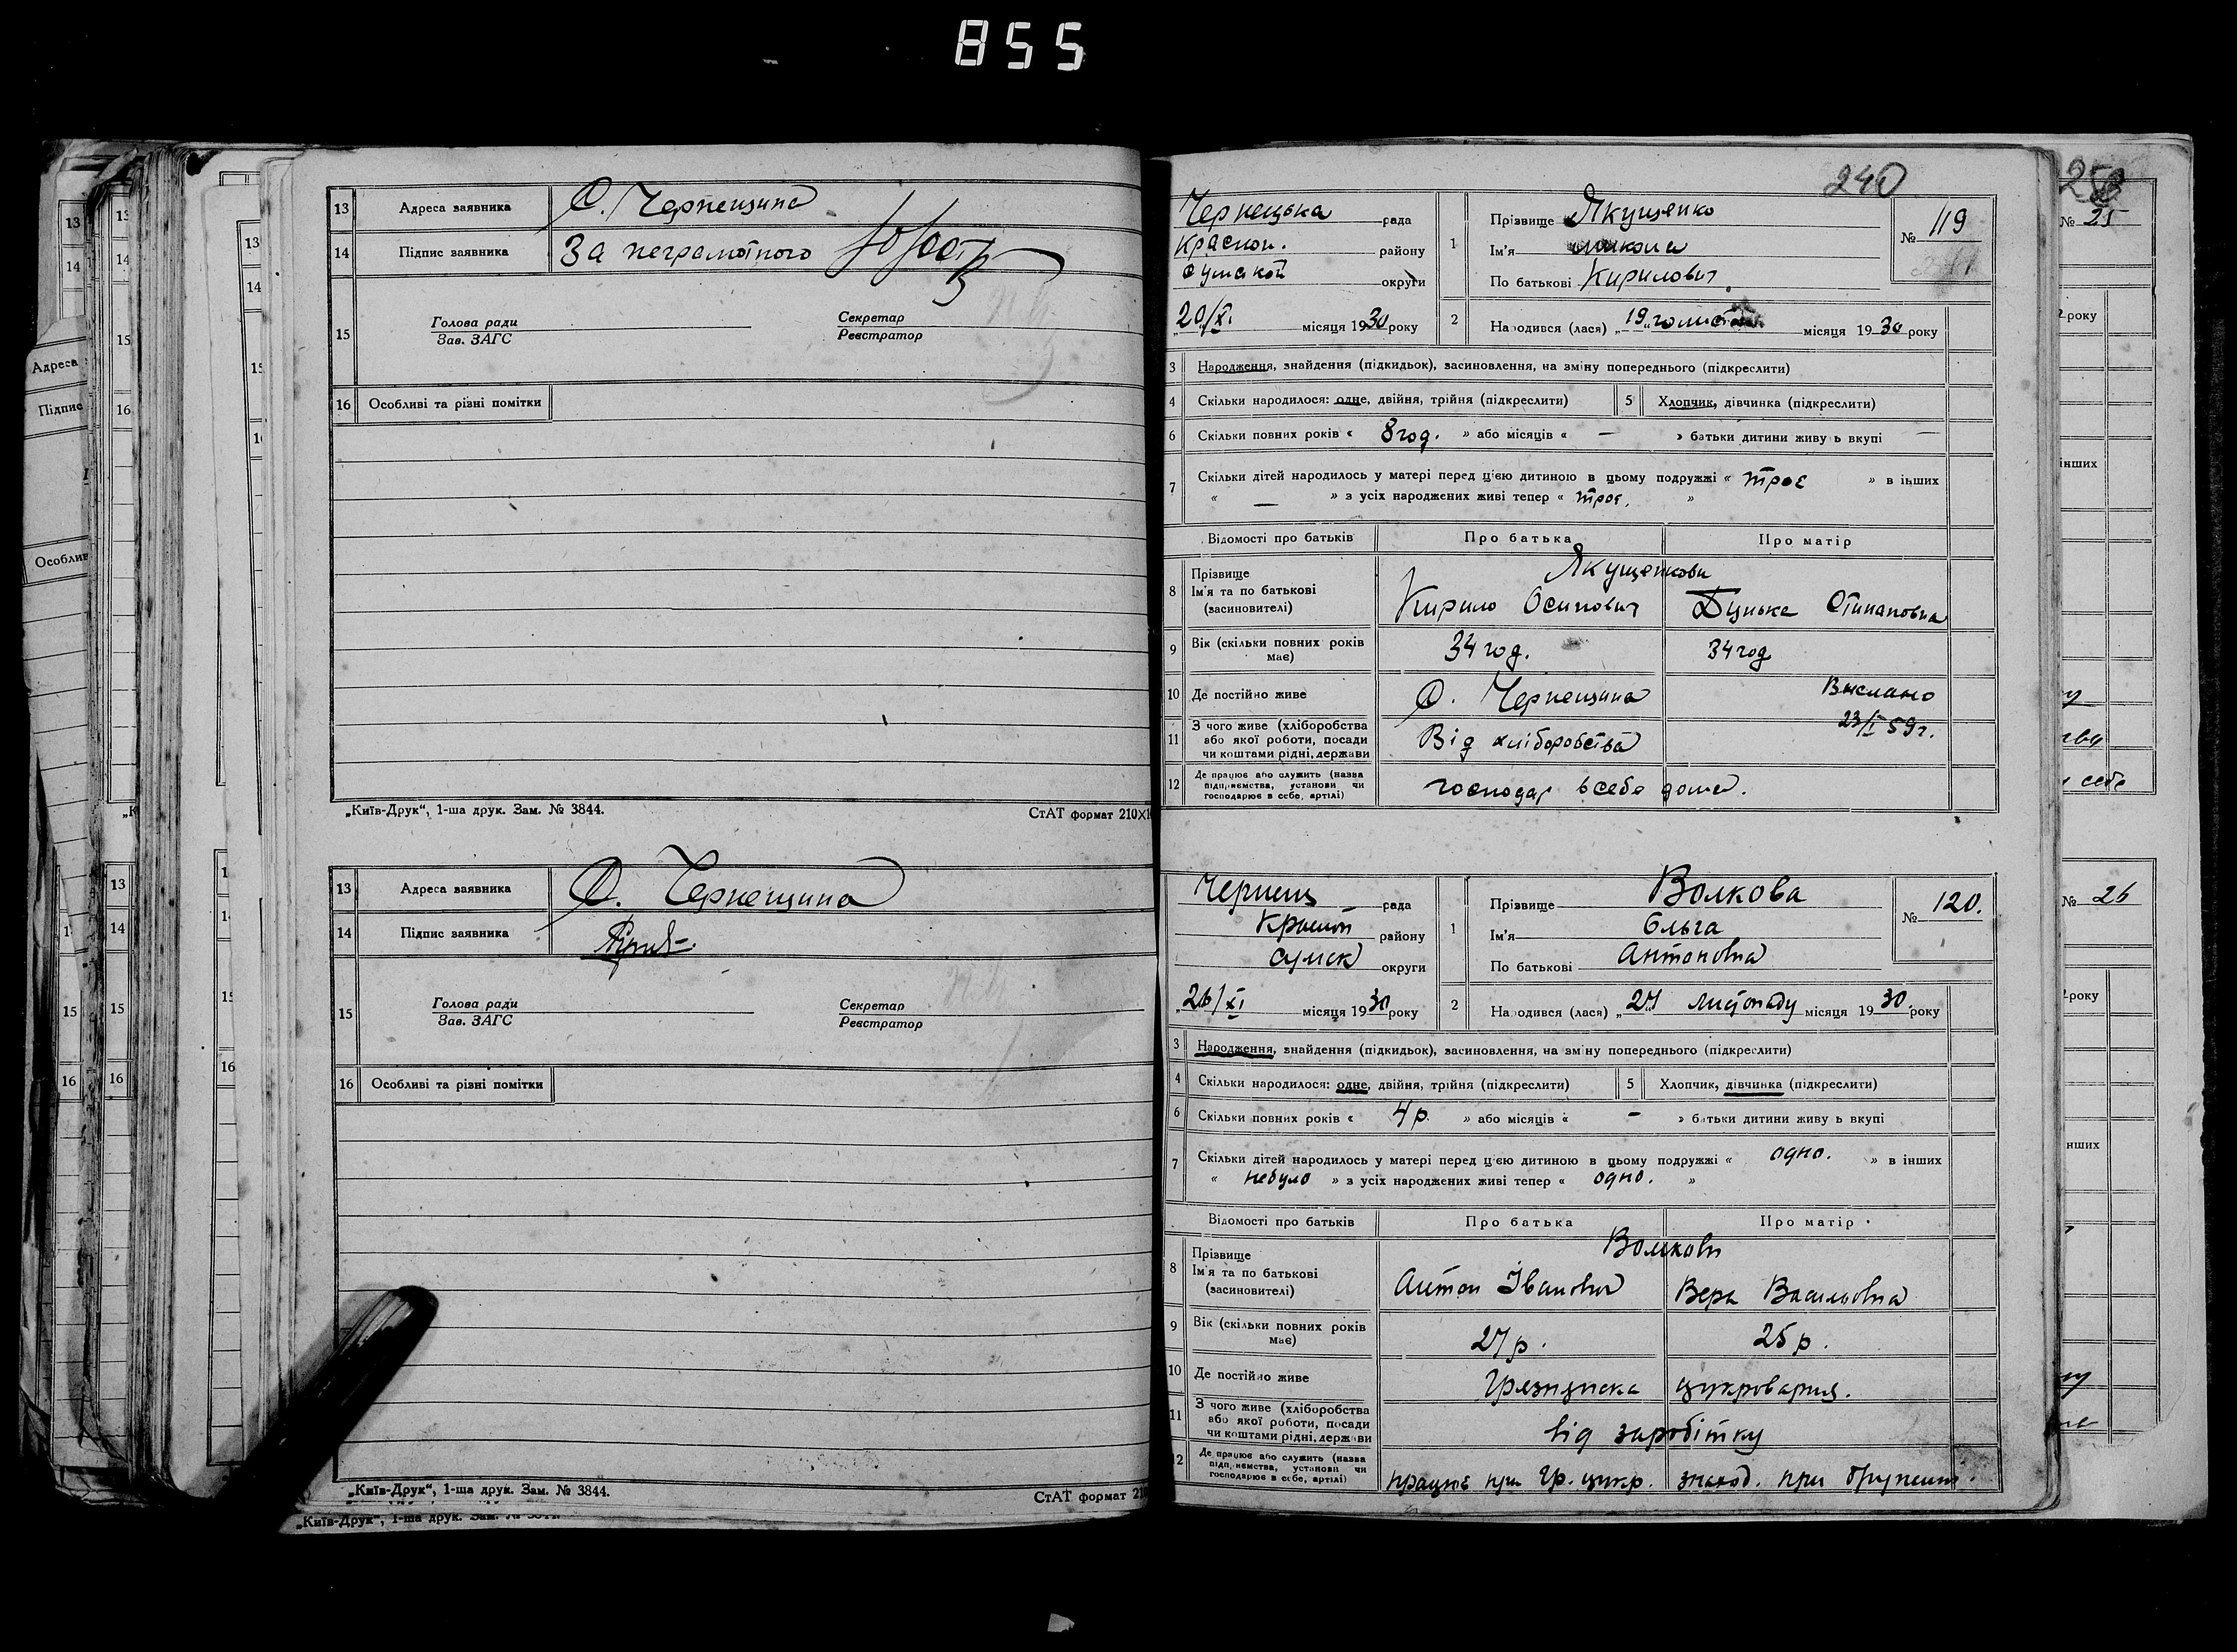 855
13 Адреса заявника С. Чернещина
14 Підпис заявника За неграмотного
15 Голова ради Секретар
Зав. ЗАГС Реєстратор
16 Особливі та різні помітки
„Київ-Друк“, 1-ша друк. Зам. № 3844.
СтАТ формат 210×
13 Адреса заявника С. Чернещина
14 Підпис заявника
15 Голова ради Секретар
Зав. ЗАГС Реєстратор
16 Особливі та різні помітки
„Київ-Друк“, 1-ша друк. Зам. № 3844.
СтАТ формат 210
„Київ-Друк“, 1-ша друк. Зам. №
240
Чернецька рада
Красноп. району
Сумской округи
„20/XI. місяця 1930 року
1 Прізвище Якущенко
Ім'я Микола
По батькові Кирилович
№ 119
2 Народився (лася) „19„ місяця 1930 року
3 Народження, знайдення (підкидьок), засиновлення, на зміну попереднього (підкреслити)
4 Скільки народилося: одне, двійня, трійня (підкреслити) 5 Хлопчик, дівчинка (підкреслити)
6 Скільки повних років « 8 год. » або місяців « — » батьки дитини живуть вкупі —
7 Скільки дітей народилось у матері перед цією дитиною в цьому подружжі « троє » в інших
« — » з усіх народжених живі тепер « троє. »
Відомості про батьків Про батька Про матір
8 Прізвище Якущенкови
Ім'я та по батькові
(засиновителі) Кирило Осипович Дунька Стипановна
9 Вік (скільки повних років має) 34 год. 34 год
10 Де постійно живе С. Чернещина Выслано
23/I 59 г.
11 З чого живе (хліборобства
або якої роботи, посади
чи коштами рідні, держави Від хліборобства
12 Де працює або служить (назва
підприємства, установи чи
господарює в себе, артілі) господар всебе дома.
Чернещ рада
Красноп району
Сумск округи
„26/XI місяця 1930 року
1 Прізвище Волкова
Ім'я Ольга
По батькові Антоновна
№ 120.
2 Народився (лася) „24„ листопаду місяця 1930 року
3 Народження, знайдення (підкидьок), засиновлення, на зміну попереднього (підкреслити)
4 Скільки народилося: одне, двійня, трійня (підкреслити) 5 Хлопчик, дівчинка (підкреслити)
6 Скільки повних років « 4 р. » або місяців « - » батьки дитини живуть вкупі
7 Скільки дітей народилось у матері перед цією дитиною в цьому подружжі « одно. » в інших
« небуло » з усіх народжених живі тепер « одно. »
Відомості про батьків Про батька Про матір
8 Прізвище Волкови
Ім'я та по батькові
(засиновителі) Антон Іванович Вера Васильовна
9 Вік (скільки повних років має) 27 р. 25 р.
10 Де постійно живе цукроварня.
11 З чого живе (хліборобства
або якої роботи, посади
чи коштами рідні, держави від заробітку
12 Де працює або служить (назва
підприємства, установи чи
господарює в себе, артілі) працює при Гр. цукр. знаход. при
№ 25
року
інших
себе
№ 26
року
інших